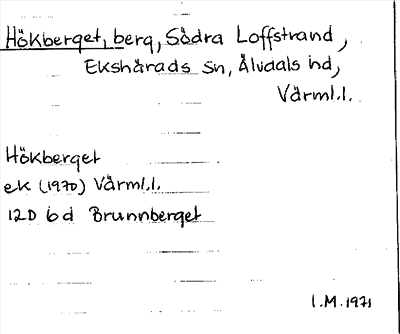 Hökberget, berg, Södra Loffstrand,
Ekshärads sn, Älvdals hd,
Värml.l.
Hökberget
ek (1970) Värml.l.
12D 6d Brunnberget
I.M. 1971